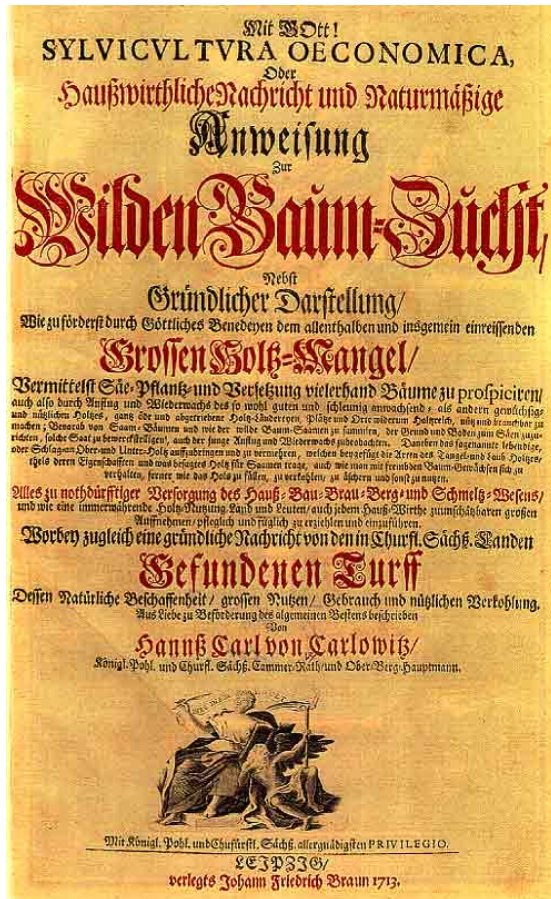 Mit GOtt!
SYLVICVLTVRA OECONOMICA,
Oder
Haußwirthliche Nachricht und Naturmäßige
Anweisung
Zur
Wilden Baum-Zucht/
Nebst
Gründlicher Darstellung/
Wie zu förderst durch Göttliches Benedeyen dem allenthalben und insgemein einreissenden
Grossen Holtz-Mangel/
Vermittelst Säe-Pflantz- und Versetzung vielerhand Bäume zu prospiciren/
auch also durch Anflug und Wiederwachs des so wohl guten und schleunig anwachsend- als andern gewüchsig-
und nützlichen Holtzes, gantz öde und abgetriebene Holtz-Ländereyen, Plätze und Orte wiederum Holtzreich, nütz und brauchbar zu
machen; Bevorab von Saam-Bäumen und wie der wilde Baum-Saamen zu sammlen, der Grund und Boden zum Säen zuzu-
richten, solche Saat zu bewerckstelligen, auch der junge Anflug und Wiederwachs zu beobachten. Daneben das sogenannte lebendige,
oder Schlag-an Ober- und Unter-Holtz auffzubringen und zu vermehren, welchen beygefügt die Arten des Tangel- und Laub-Holtzes,
theils deren Eigenschafften und was besagtes Holtz für Saamen trage, auch wie man mit frembden Baum-Gewächsen sich zu
verhalten, ferner wie das Holtz zu fällen, zu verkohlen, zu äschern und sonst zu nutzen.
Alles zu nothdürfftiger Versorgung des Hauß- Bau- Brau- Berg- und Schmeltz-Wesens/
und wie eine immerwährende Holtz-Nutzung Land und Leuten, auch jedem Hauß-Wirthe zu unschätzbaren großen
Auffnehmen, pfleglich und füglich zu erziehlen und einzuführen.
Worbey zugleich eine gründliche Nachricht von den in Churfl. Sächß. Landen
Gefundenen Turff
Dessen Natürliche Beschaffenheit/ grossen Nutzen/ Gebrauch und nützlichen Verkohlung.
Aus Liebe zu Beförderung des algemeinen Bestens beschrieben
Von
Hannß Carl von Carlowitz/
Königl. Pohl. und Churfl. Sächß. Cammer-Rath/ und Ober-Berg-Hauptmann.
Mit Königl. Pohl. und Churfürstl. Sächß. allergnädigsten PRIVILEGIO.
LEIPZIG/
verlegts Johann Friedrich Braun 1713.